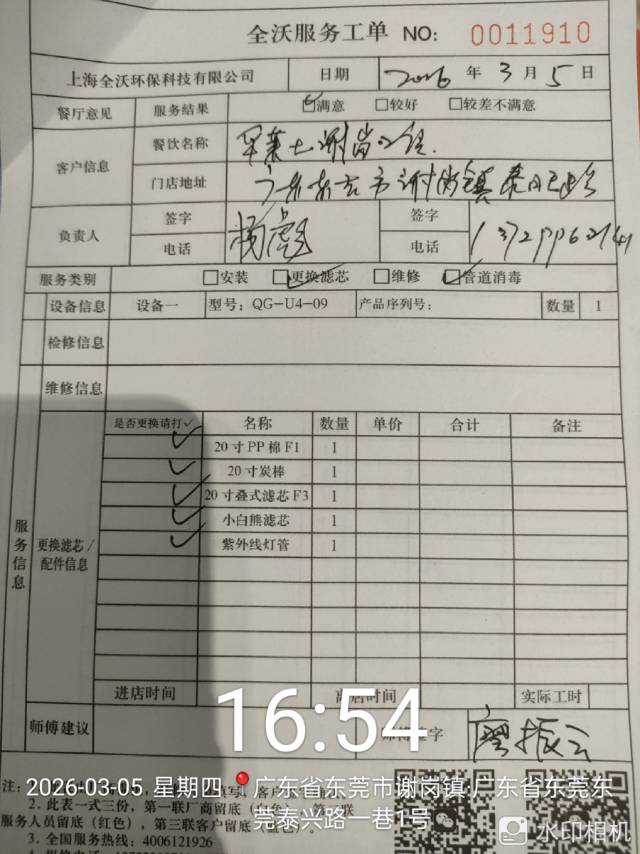 全沃服务工单 NO: 0011910
上海全沃环保科技有限公司 日期 2026 年 3 月 5 日
餐厅意见 服务结果 ☑满意 ☐较好 ☐较差不满意
客户信息 餐饮名称 谢岗
门店地址 广东东莞市谢岗镇泰
负责人 签字 签字
电话 电话 13729962741
服务类别 ☐安装 ☑更换滤芯 ☐维修 ☑管道消毒
设备信息 设备一 型号: QG-U4-09 产品序列号: 数量 1
检修信息
维修信息
服务信息
更换滤芯/配件信息
是否更换请打✓ 名称 数量 单价 合计 备注
✓ 20寸PP棉F1 1
✓ 20寸炭棒 1
✓ 20寸叠式滤芯F3 1
✓ 小白熊滤芯 1
✓ 紫外线灯管 1
进店时间 离店时间 实际工时
师傅建议 师傅签字 廖振云
16:54
2026-03-05 星期四 广东省东莞市谢岗镇·广东省东莞东
莞泰兴路一巷1号
注:
2. 此表一式三份, 第一联厂商留底
服务人员留底(红色), 第三联客户留底
3. 全国服务热线: 4006121926
水印相机